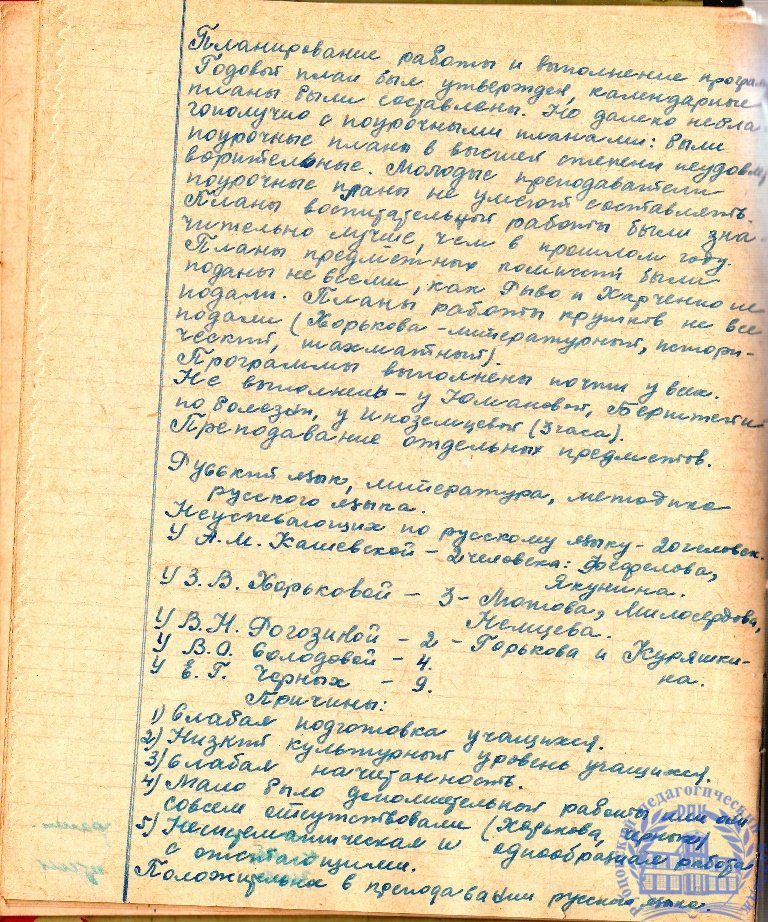 Планирование работы и выполнение програм
Годовой план был утвержден, календарные
планы были составлены. Но далеко небла-
гополучно с поурочными планами: были
поурочные планы в высшей степени неудовле
ворительные. Молодые преподаватели
поурочные планы не умеют составлять.
Планы воспитательной работы были зна-
чительно лучше, чем в прошлом году.
Планы предметных комиссий были
поданы не всеми, как Рыво и Харченко не
подали. Планы работы кружков не все
подали (Хорькова - литературный, истори-
ческий, шахматный).
Программы выполнены почти у всех.
Не выполнены - у Юмановой, Бернштейн
по болезни, у Иноземцевой (3 часа).
Преподавание отдельных предметов.
Русский язык, литература, методика
русского языка.
Неуспевающих по русскому языку - 20 человек.
У А.М. Кашевской - 2 человека: Фефелова,
Якунина.
У З.В. Хорьковой - 3 - Мотова, Милосердова,
Немцева.
У В.Н. Рогозиной - 2 - Горькова и Куряшки-
на.
У В.О. Володовой - 4.
У Е.Г. Черных - 9.
Причины:
1) Слабая подготовка учащихся.
2) Низкий культурный уровень учащихся.
3) Слабая начитанность.
4) Мало было дополнительной работы или они
совсем отсутствовали (Хорькова, Черных)
5) Несистематическая и однообразная работа
с отстающими.
Положительна в преподавании русского языка.
педагогический
РПК